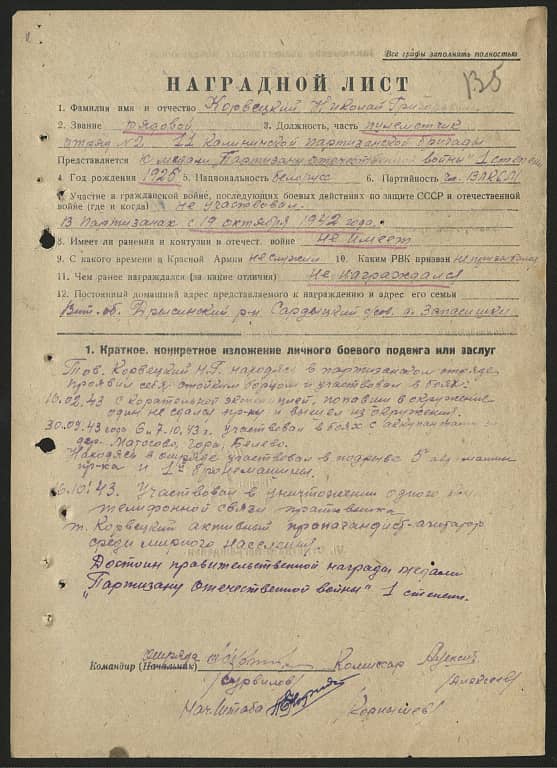 Все графы заполнять полностью
135
НАГРАДНОЙ ЛИСТ
1. Фамилия имя и отчество Корвецкий Николай Григорьевич
2. Звание рядовой 3. Должность, часть пулеметчик
отряд №2 22 Калининской партизанской бригады
Представляется к медали "Партизану отечественной войны" 1 степени
4. Год рождения 1926 5. Национальность белорус 6. Партийность чл. ВЛКСМ
7. Участие в гражданской войне, последующих боевых действиях по защите СССР и отечественной
войне (где и когда) не участвовал.
В партизанах с 19 октября 1942 года.
8. Имеет ли ранения и контузии в отечест. войне не имеет
9. С какого времени в Красной Армии не служил 10. Каким РВК призван не призывался
11. Чем ранее награждался (за какие отличия) Не награждался
12. Постоянный домашний адрес представляемого к награждению и адрес его семьи
Вит. об. Дрисинский р-н Сардыцкий с/сов. д. Запасишки
1. Краткое, конкретное изложение личного боевого подвига или заслуг
Тов. Корвецкий Н.Г. находясь в партизанском отряде
проявил себя стойким борцом и участвовал в боях:
16.02.43 с карательной экспедицией, попавши в окружение
один не сдался пр-ку и вышел из окружения.
30.09.43 года 6 и 7.10.43 г. участвовал в боях с оккупантами за
дер. Матосово, Гора, Белево.
Находясь в отряде участвовал в подрыве 5 авт. машин
пр-ка и 1й бронемашины.
16.10.43. Участвовал в уничтожении одного км
телефонной связи противника
т. Корвецкий активный пропагандист-агитатор
среди мирного населения.
Достоин правительственной награды медали
"Партизану отечественной войны" 1 степени.
отряда
Командир (Начальник) Комиссар
/Сурвилов/ /Алексеев/
Нач. Штаба /Корнышев/